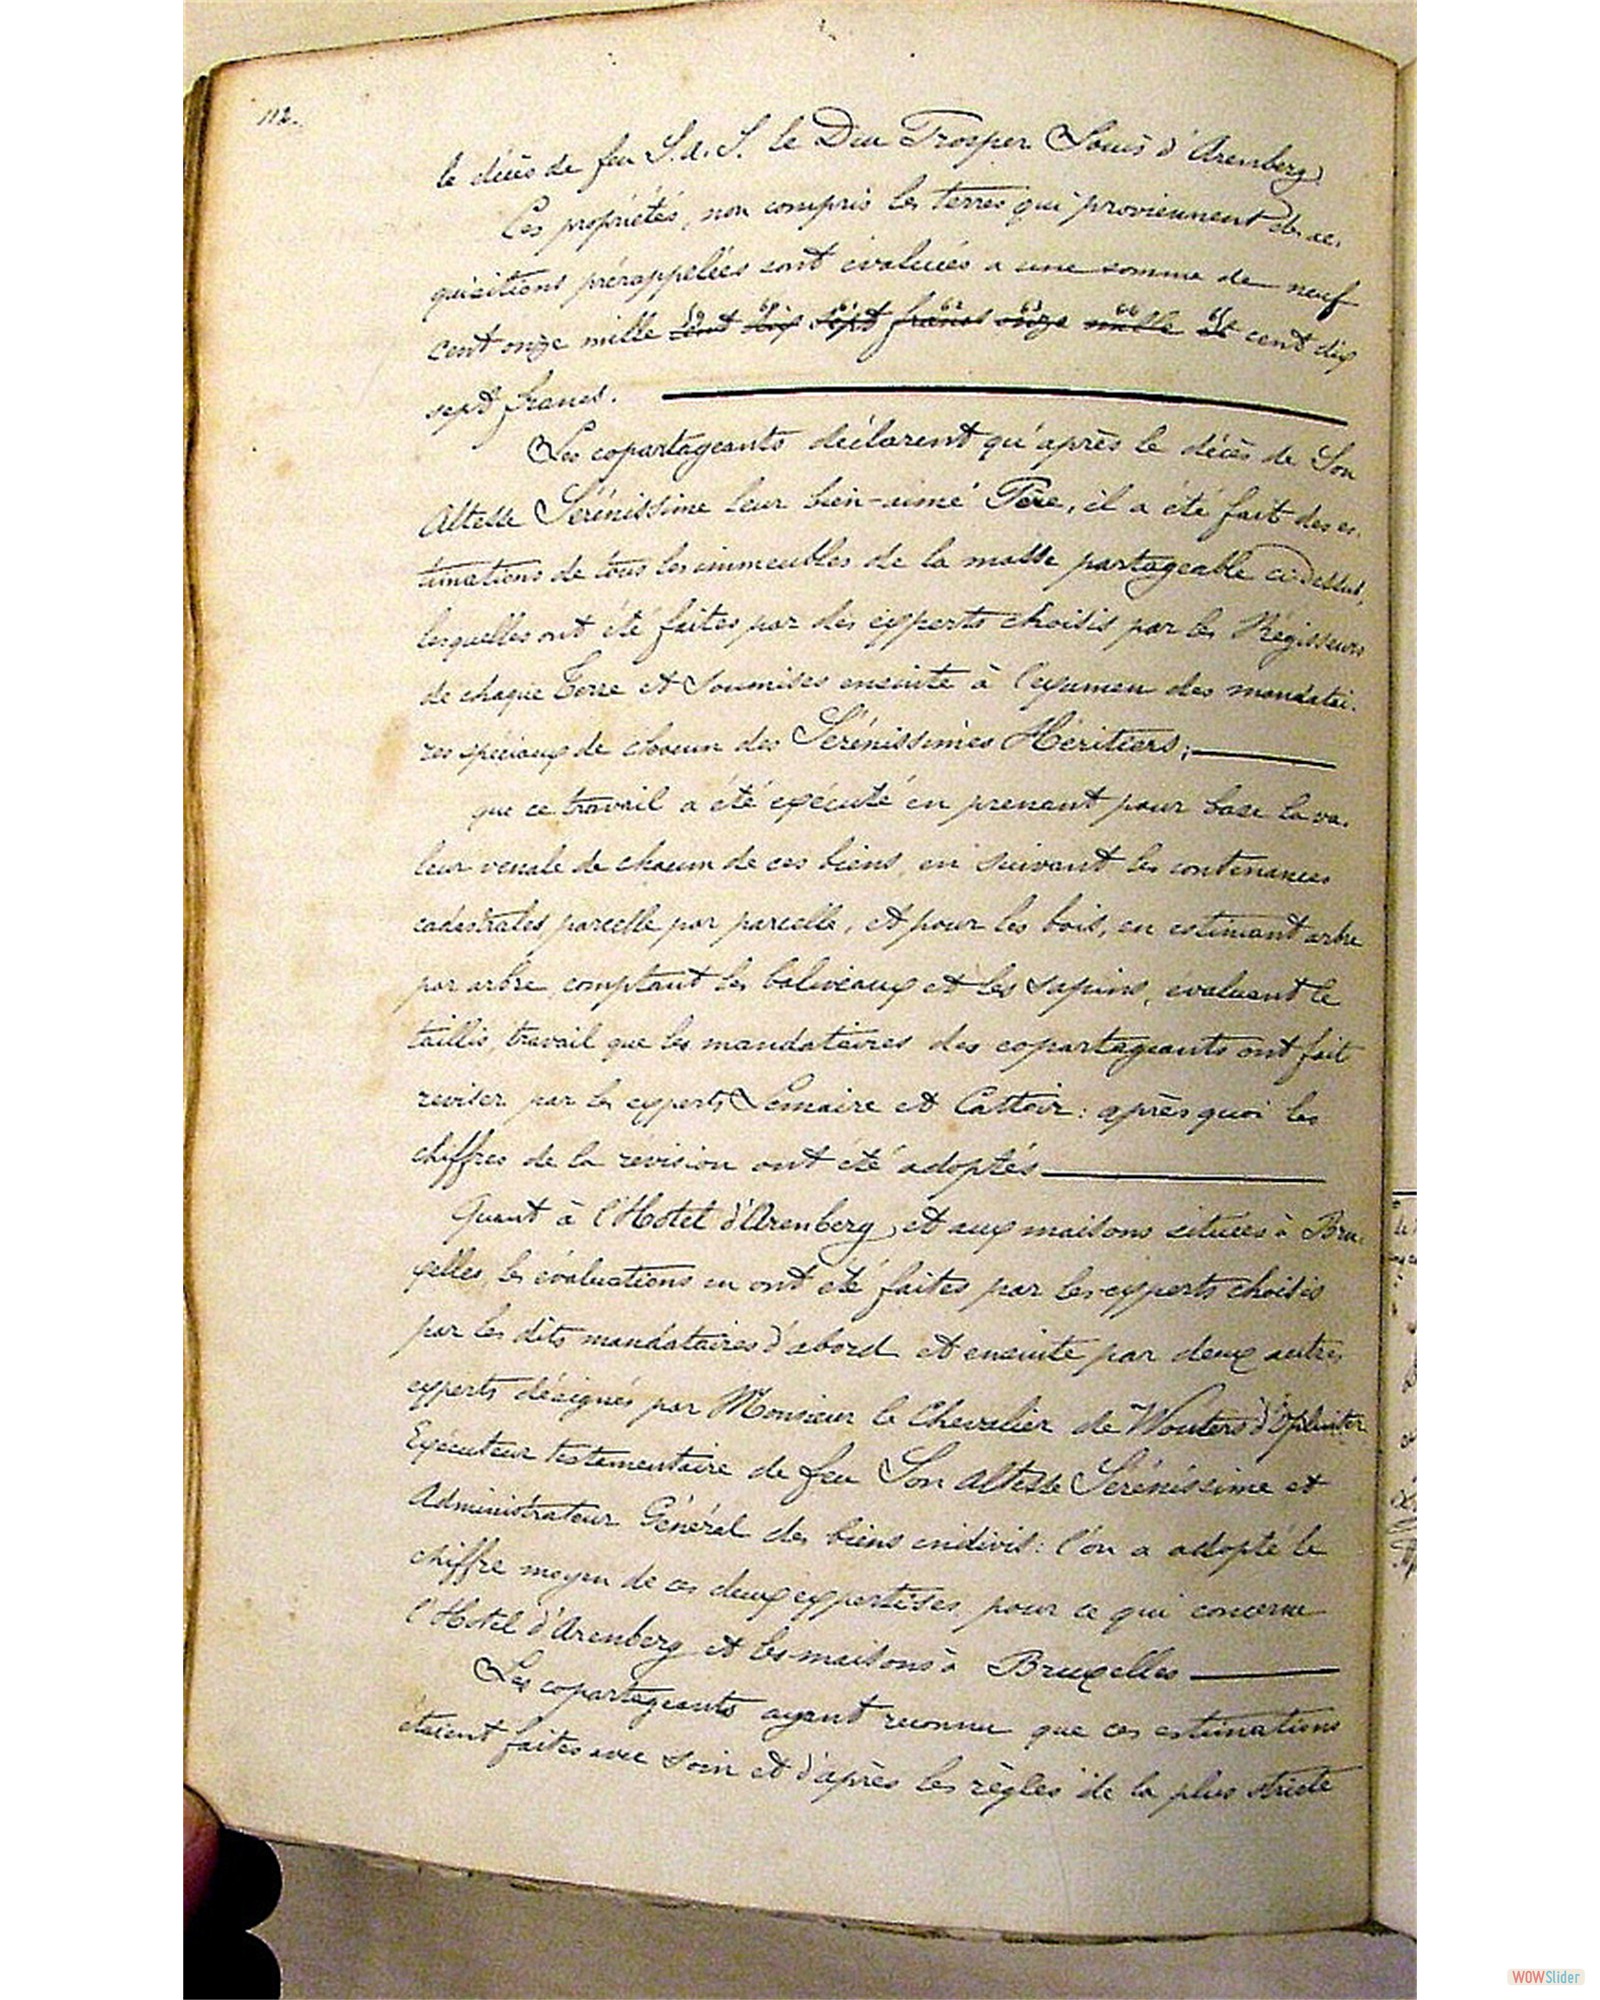 112.
le décès de feu S. A. S. le Duc Prosper Louis d'Arenberg.
Ces propriétés, non compris les terres qui proviennent des ac-
quisitions prérappelées sont évaluées a une somme de neuf
59 60 61 62 63 64 65
cent onze mille cent dix sept francs onze mille et cent dix
sept francs.
Les copartageants déclarent qu'après le décès de Son
Altesse Sérénissime leur bien-aimé Père, il a été fait des es-
timations de tous les immeubles de la masse partageable ci dessus,
lesquelles ont été faites par des experts choisis par les Régisseurs
de chaque Terre et soumises ensuite à l'examen des mandatai-
res spéciaux de chacun des Sérénissimes Héritiers;
que ce travail a été exécuté en prenant pour base la va-
leur venale de chacun de ces biens, en suivant les contenances
cadastrales parcelle par parcelle, et pour les bois, en estimant arbre
par arbre, comptant les baliveaux et les sapins, évaluant le
taillis, travail que les mandataires des copartageants ont fait
reviser par les experts Lemaire et Cattoir: après quoi les
chiffres de la révision ont été adoptés
Quant à l'Hotel d'Arenberg, et aux maisons situées à Bru-
xelles, les évaluations en ont été faites par les experts choisis
par les dits mandataires d'abord et ensuite par deux autres
experts désignés par Monsieur le Chevalier de Wouters d'Oplinter
Exécuteur testamentaire de feu Son Altesse Sérénissime et
Administrateur Général des biens indivis: l'on a adopté le
chiffre moyen de ces deux expertises, pour ce qui concerne
l'Hotel d'Arenberg et les maisons à Bruxelles
Les copartageants ayant reconnu que ces estimations
étaient faites avec soin et d'après les règles de la plus stricte
WOWSlider